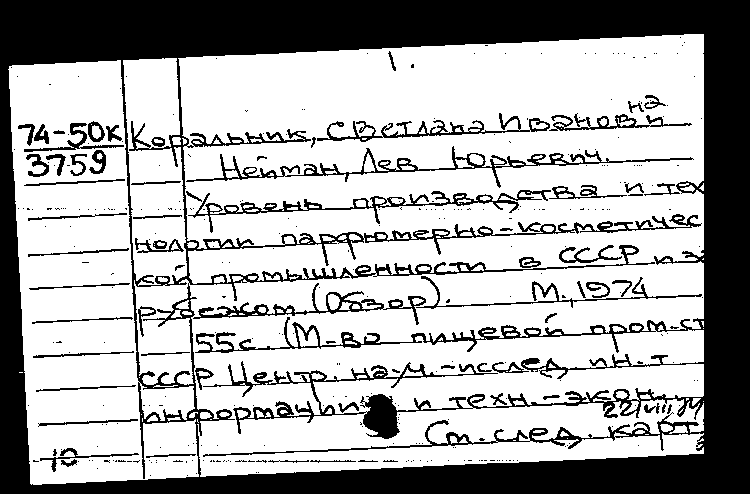 1.
74-50к Коральник, Светлана Ивановна и
3759 Нейман, Лев Юрьевич.
Уровень производства и тех
нологии парфюмерно-косметичес
кой промышленности в СССР и за
рубежом (Обзор). М., 1974
55с. (М-во пищевой пром-ст
СССР Центр. науч.-исслед. ин-т
информации и техн.-экон.
22/VIII 74
См. след. карт
10